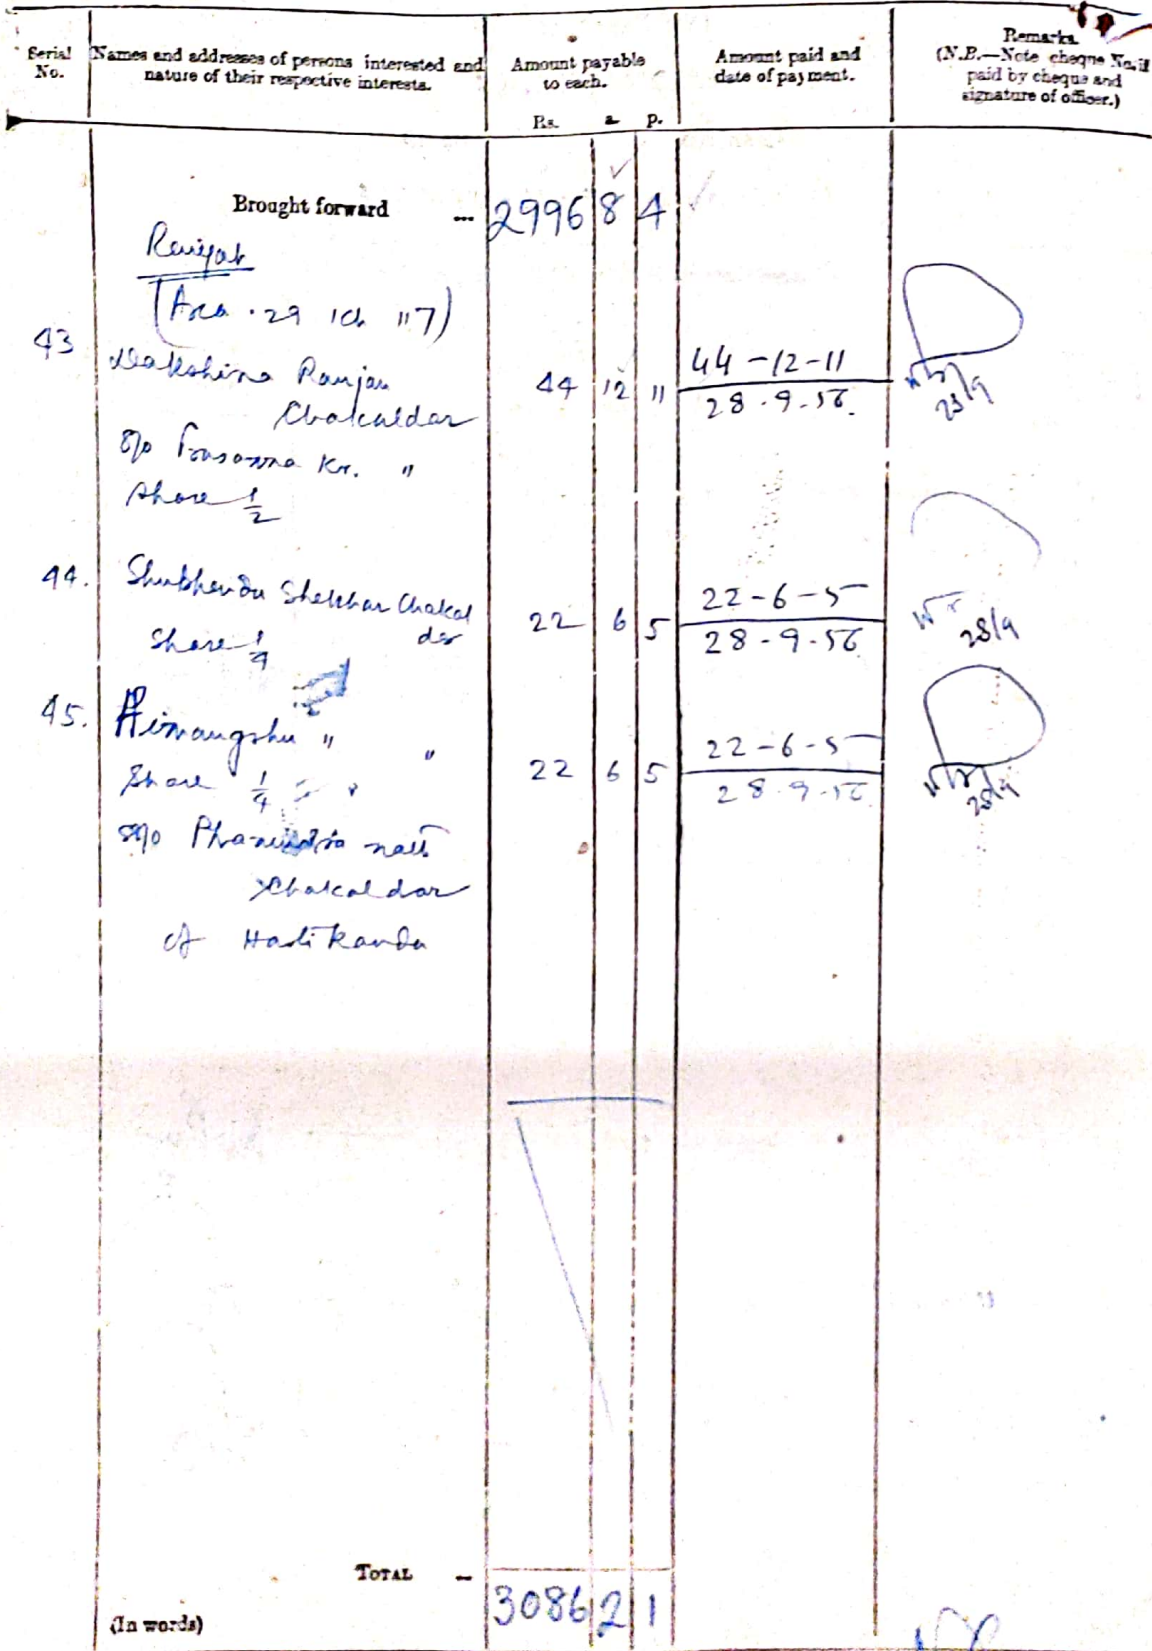 Serial No.
Names and addresses of persons interested and nature of their respective interests.
Amount payable to each.
Rs. a. p.
Amount paid and date of payment.
Remarks.
(N.B.—Note cheque No. if paid by cheque and signature of officer.)
Brought forward ... 2996 8 4
Raiyat
43
Dakshina Ranjan 44 12 11 44-12-11
Chakaldar 28.9.56.
S/o Prasanna Kr. "
Share 1/2
28/9
44. Shubhendu Shekhar Chakal
dar
Share 1/4 22 6 5 22-6-5
28-9-56
28/9
45. Himangshu " "
Share 1/4 22 6 5 22-6-5
28.9.56
28/9
S/o Phanindra nath
Chakaldar
of Hasti Kanda
TOTAL 3086 2 1
(In words)